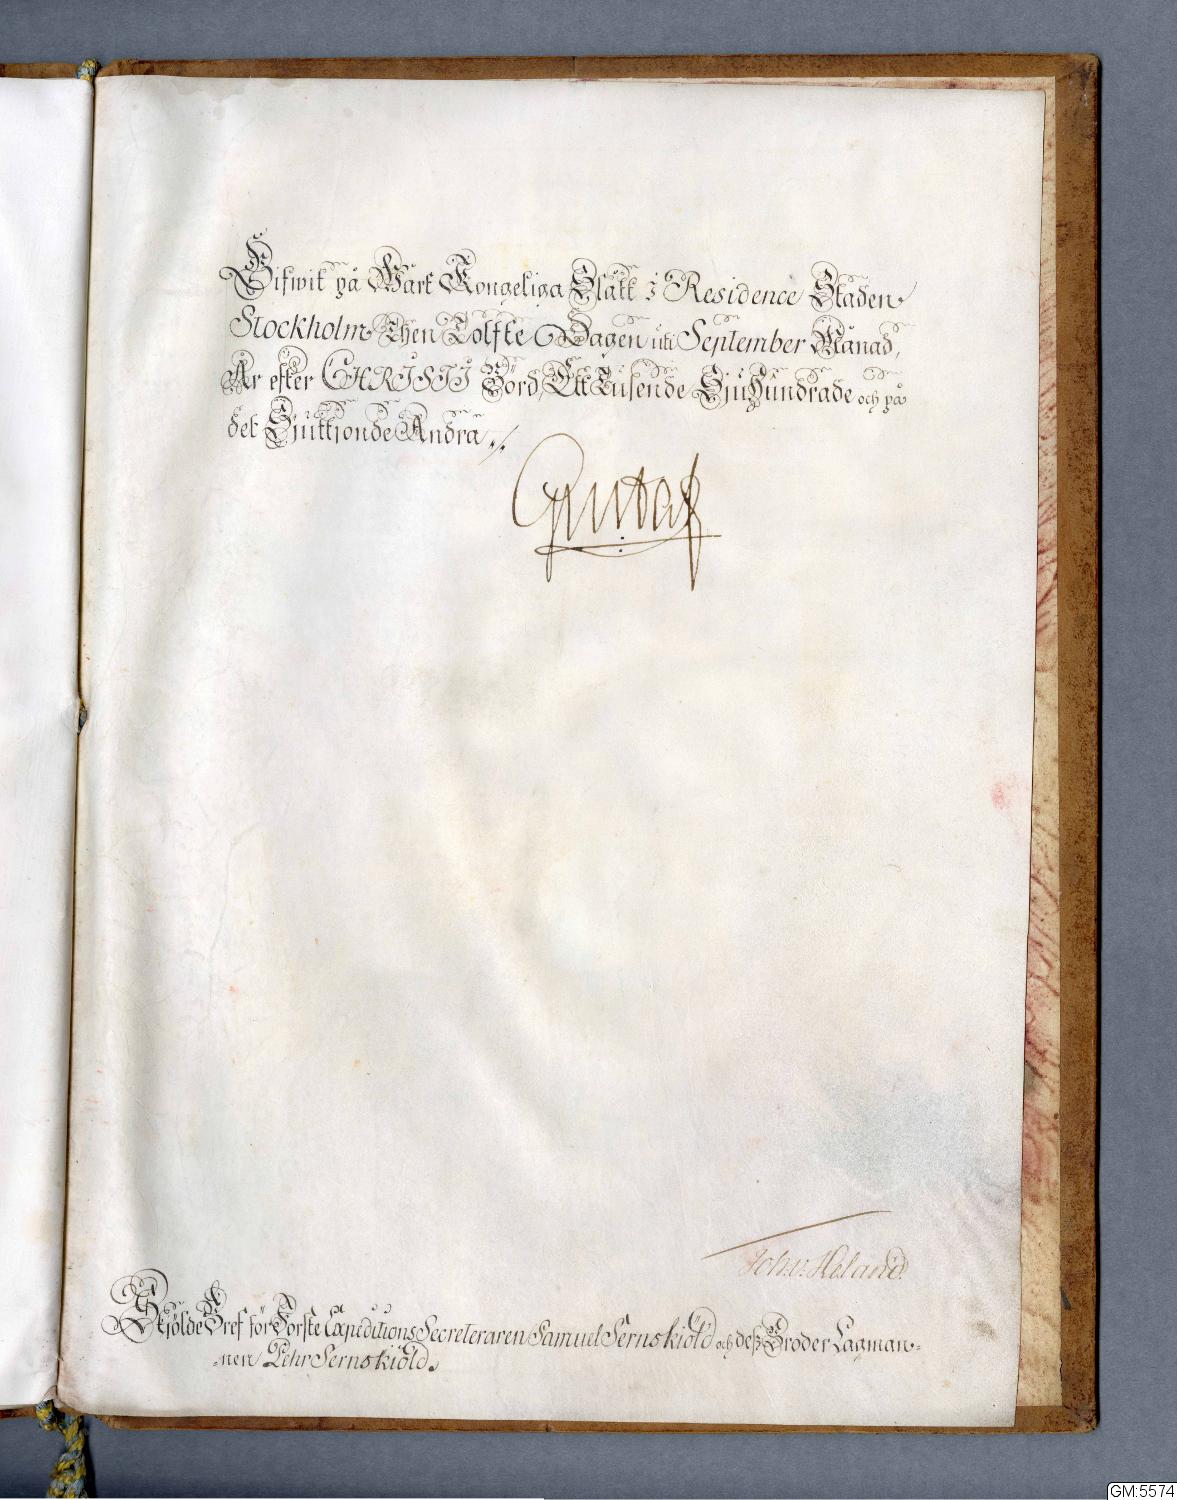 Gifwit på Wårt Kongeliga Slått i Residence Staden
Stockholm Then Tolfte Dagen uti September Månad,
År efter CHRISTI Börd, Ett Tusende Sju Hundrade och på
det Sjuttjonde Andra
Gustaf
Joh. v. Heland.
Skjölde Bref för Förste Expeditions Secreteraren Samuel Sernskiöld och deß Broder Lagman-
-nen Pehr Sernskiöld.
GM:5574